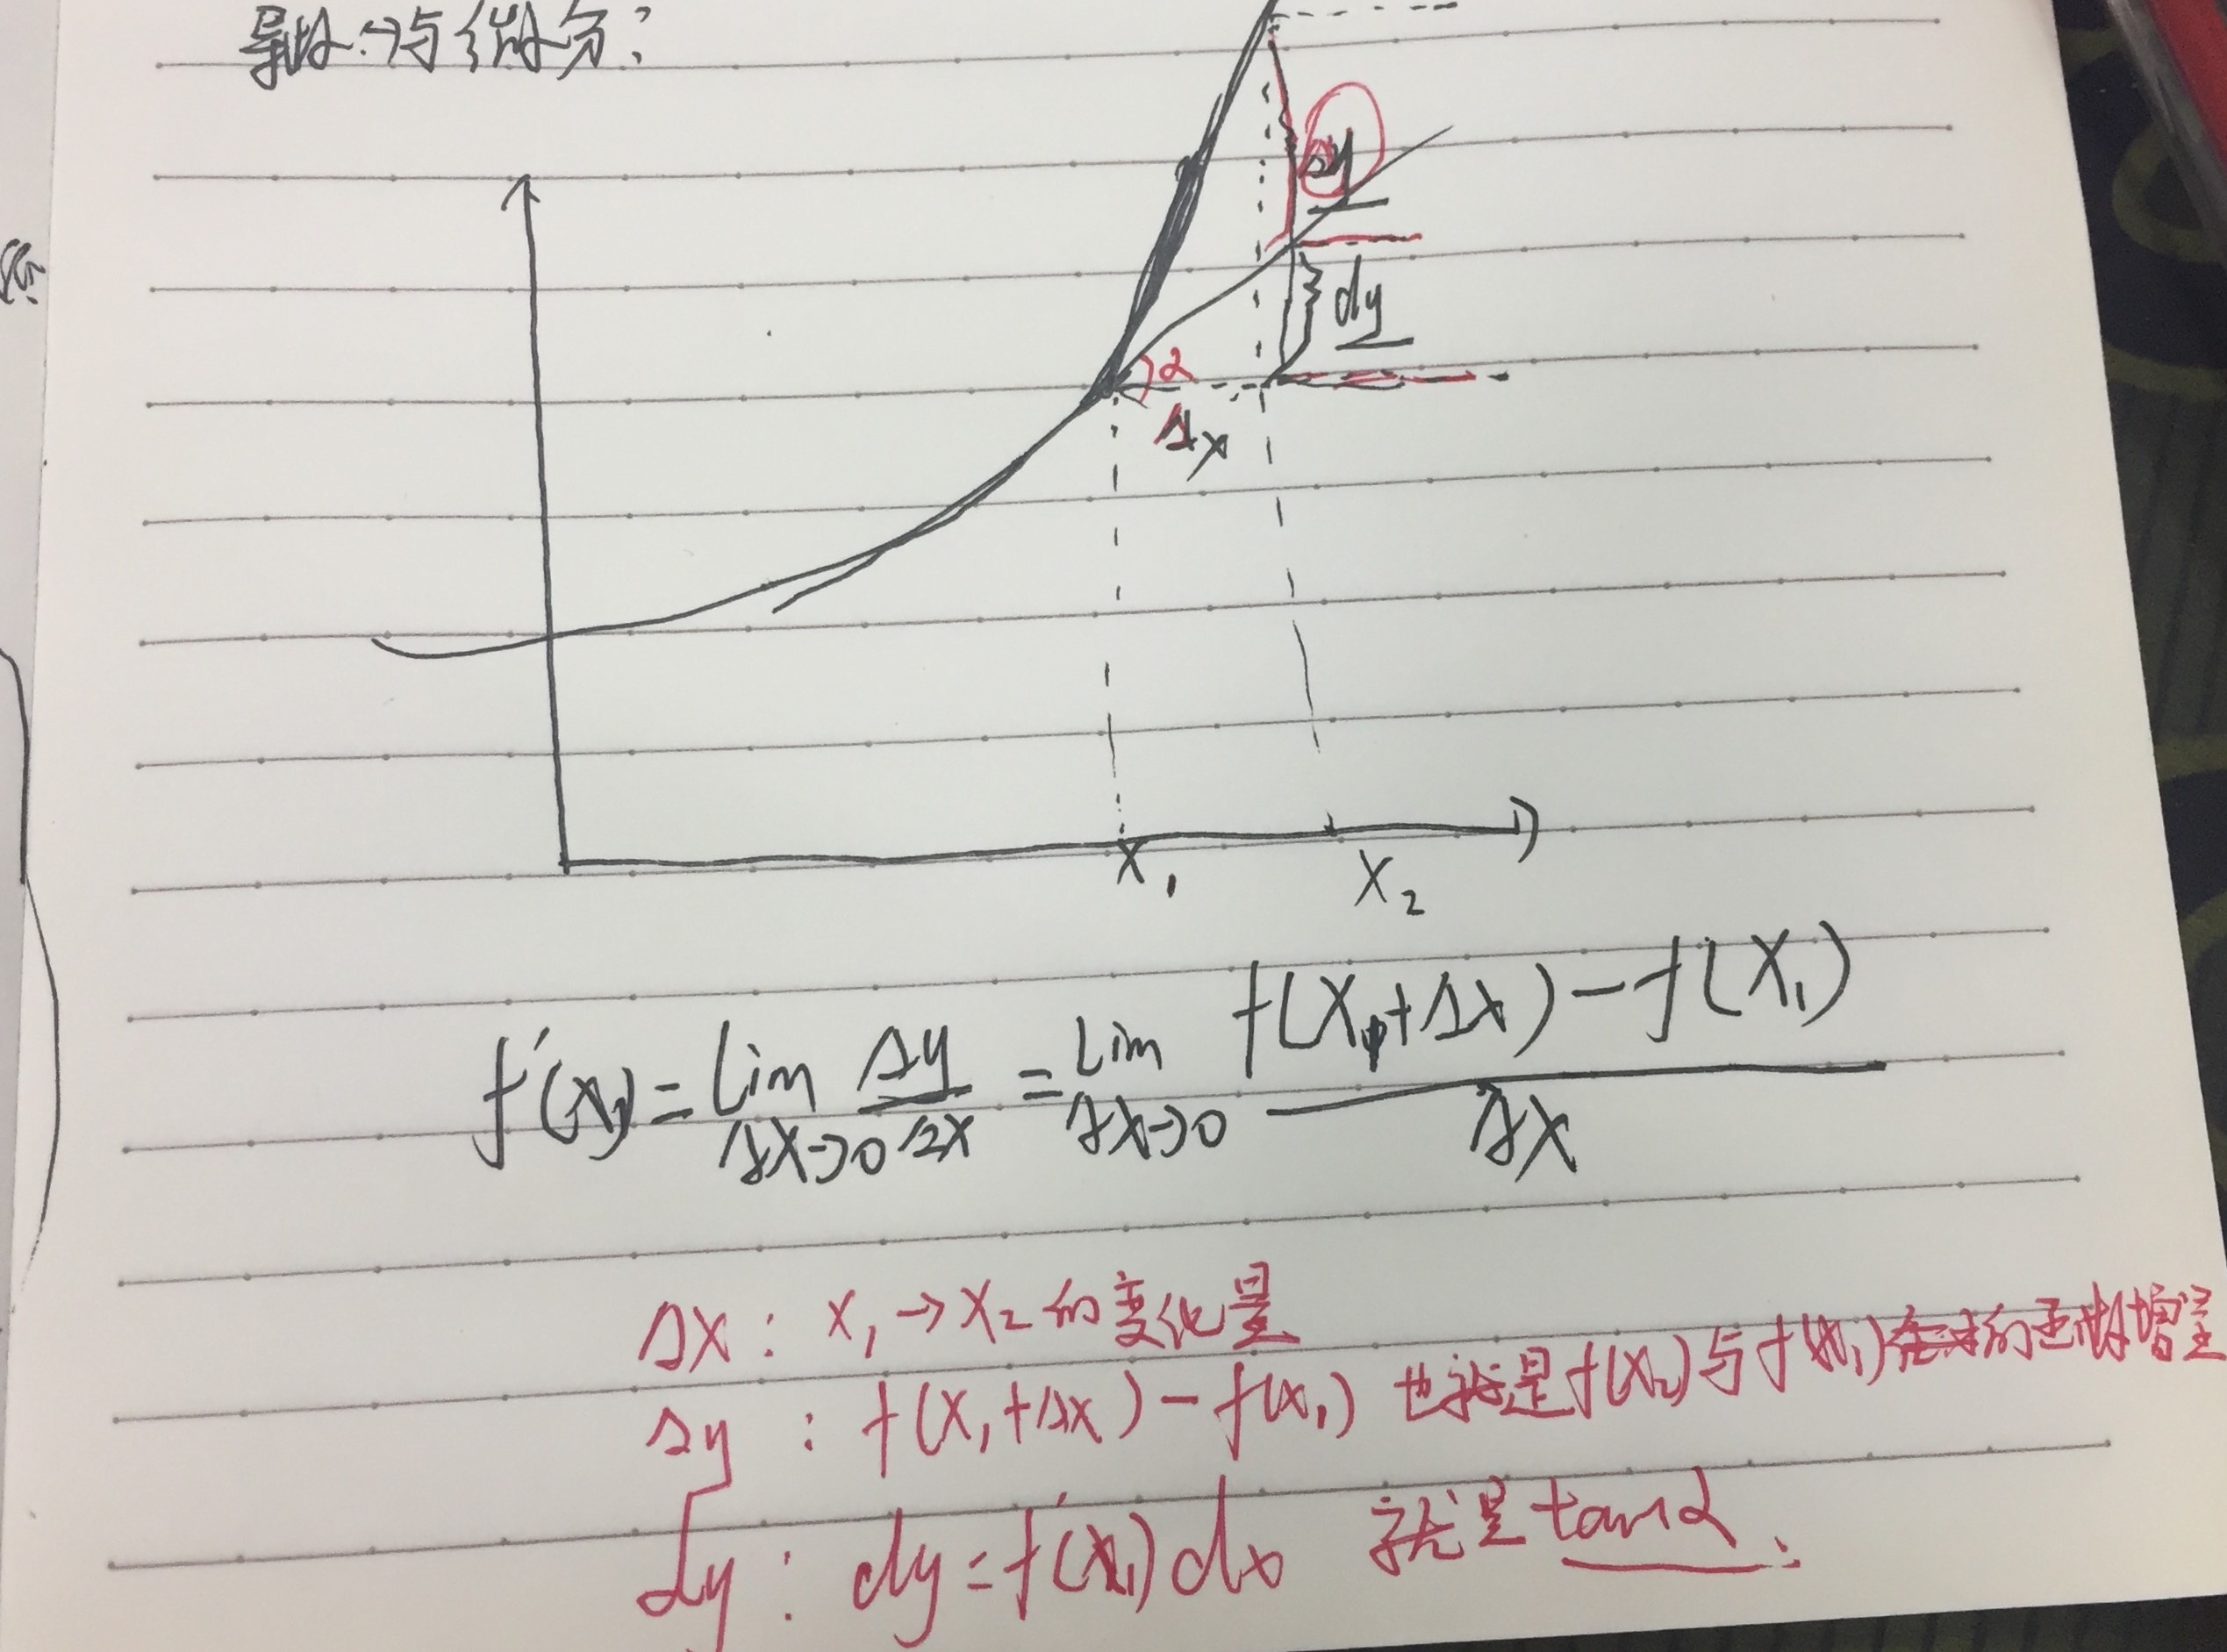 导数与微分:
Δy
dy
α
Δx
x₁
x₂
f'(x₁) = lim Δx→0 Δy/Δx = lim Δx→0 (f(x₁+Δx) - f(x₁))/Δx
Δx : x₁→x₂ 的变化量
Δy : f(x₁+Δx) - f(x₁) 也就是 f(x₂) 与 f(x₁) 的函数增量
dy : dy = f'(x₁) dx 就是 tanα.